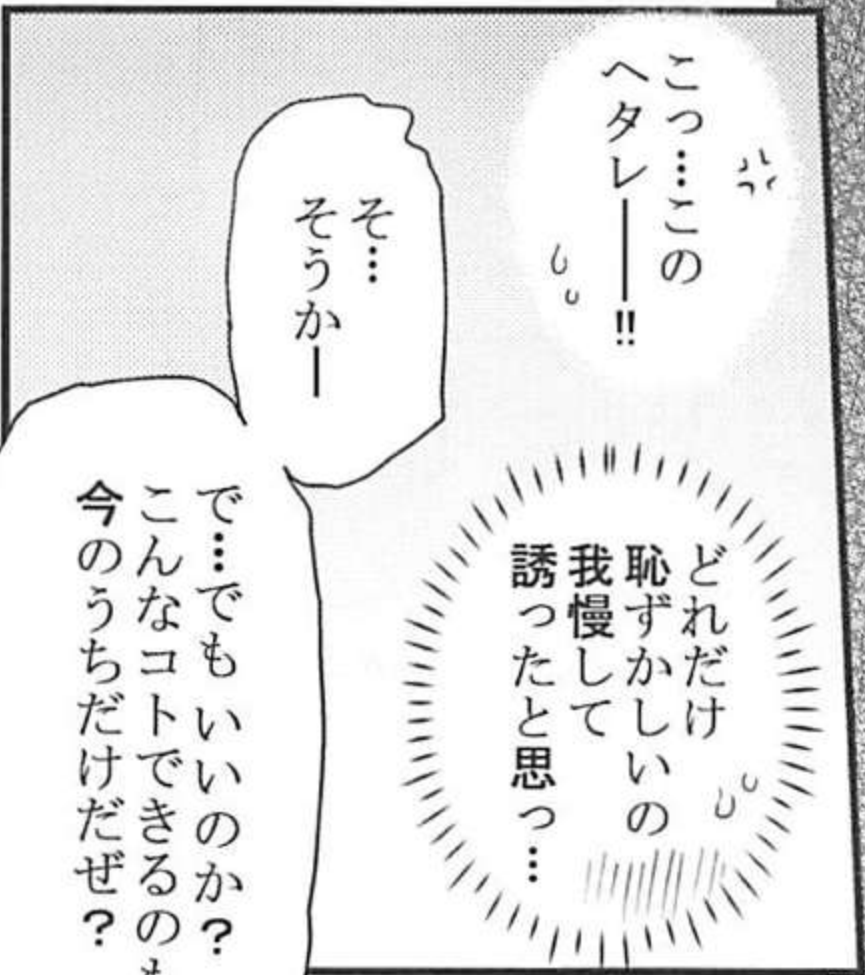 こっ…この
ヘタレ――!!
どれだけ
恥ずかしいの
我慢して
誘ったと思っ…
そ…
そうかー
で…でもいいのか?
こんなコトできるのも
今のうちだけだぜ?